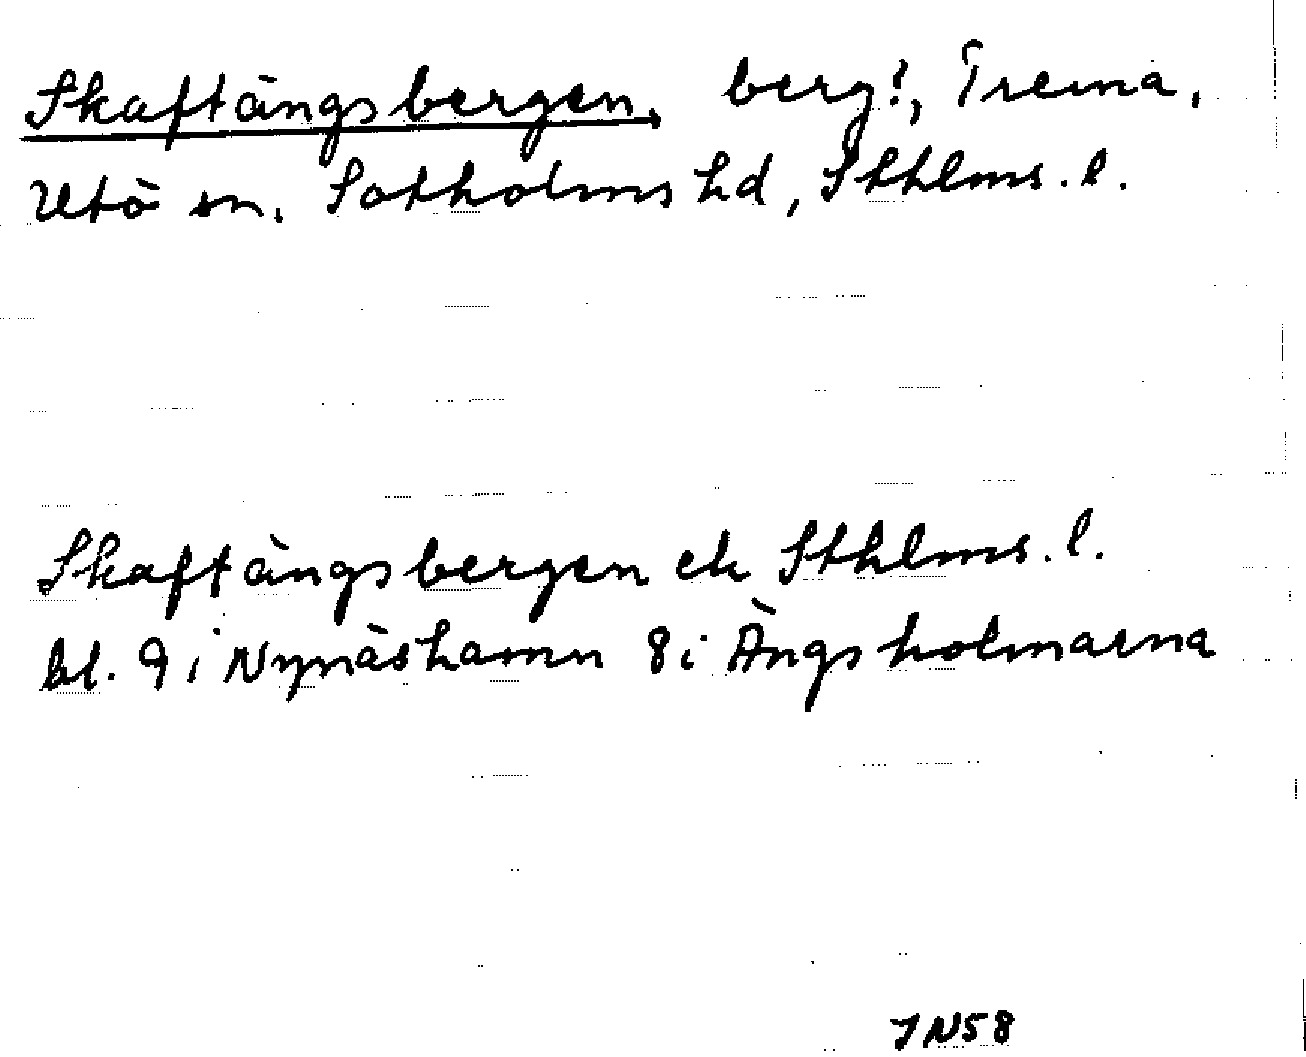 Skaftängsbergen, berg!, Trema,
Utö sn, Sotholms hd, Sthlms.l.
Skaftängsbergen ek Sthlms.l.
bl. 9 i Nynäshamn 8 i Ängsholmarna
JN58